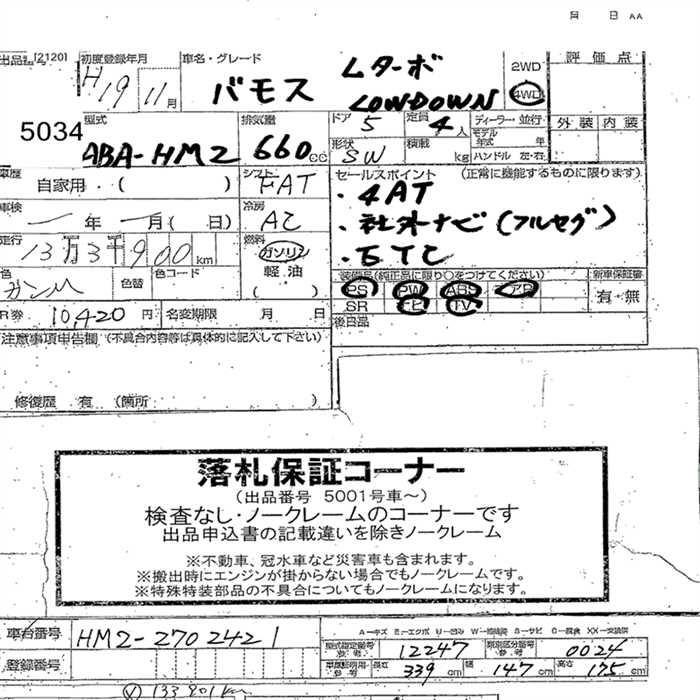 月 日 AA
出品 [2120] 初度登録年月 車名・グレード 2WD 評価点
H19 11月 バモス Lターボ LOWDOWN 4WD
5034 型式 ABA-HM2 排気量 660cc ドア 5 定員 4人 ディーラー・並行 外装 内装
形状 SW 積載 kg モデル年式 年 ハンドル 左・右
車歴 自家用・( ) シフト FAT セールスポイント (正常に機能するものに限ります)
・4AT
車検 年 月( 日) 冷房 AC ・社外ナビ(フルセグ)
走行 13万3千900km 燃料 ガソリン 軽油 ( ) ・ETC
装備品(純正品に限り○をつけてください) 新車保証書
色 ガンM 色替 色コード PS PW ABS エアB 有・無
SR TV
R券 10,420円 名変期限 月 日 後日品
注意事項申告欄 (不具合内容等は具体的に記入して下さい)
修復歴 有 (箇所 )
落札保証コーナー
(出品番号 5001号車～)
検査なし・ノークレームのコーナーです
出品申込書の記載違いを除きノークレーム
※不動車、冠水車など災害車も含まれます。
※搬出時にエンジンが掛からない場合でもノークレームです。
※特殊特装部品の不具合についてもノークレームになります。
車台番号 HM2-2702421
型式指定番号 参考 12247 類別区分番号 参考 0024
登録番号 長さ 339cm 幅 147cm 高さ 175cm
133,801km